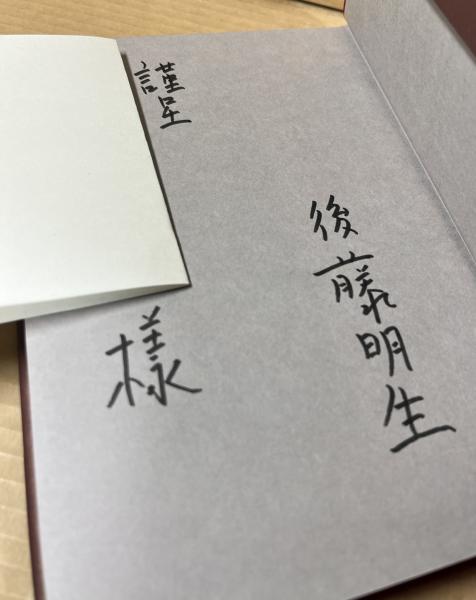 後藤明生
謹呈
様